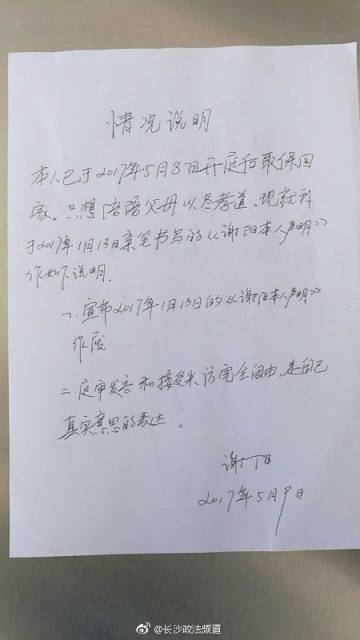 情况说明
本人已于2017年5月8日开庭后取保回
家。只想陪陪父母以尽孝道。现就我
于2017年1月13日亲笔书写的《谢阳本人声明》
作如下说明.
一、宣布2017年1月13日的《谢阳本人声明》
作废
二.庭审发言和接受采访完全自由,是自己
真实意思的表达。
谢阳
2017年5月9日
@长沙政法频道